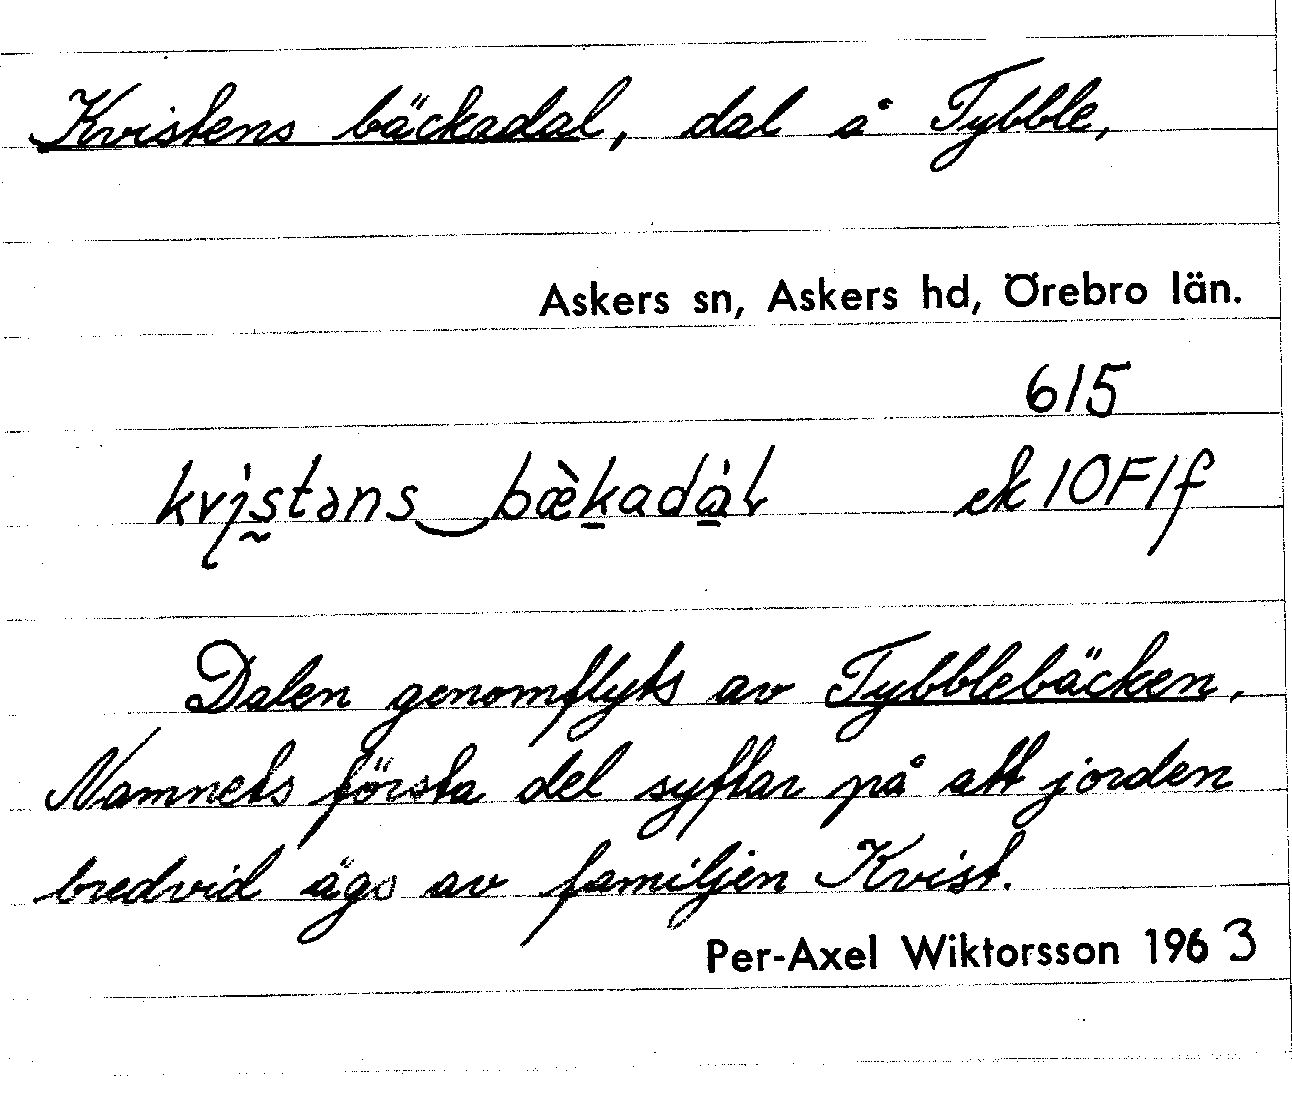 Kvistens bäckadal, dal å Tybble,
Askers sn, Askers hd, Örebro län.
615
kvı̡̀s̰təns‿bæ̀ḵadà̱ɫ ek 10F1f
Dalen genomflyts av Tybblebäcken.
Namnets första del syftar på att jorden
bredvid ägs av familjen Kvist.
Per-Axel Wiktorsson 1963